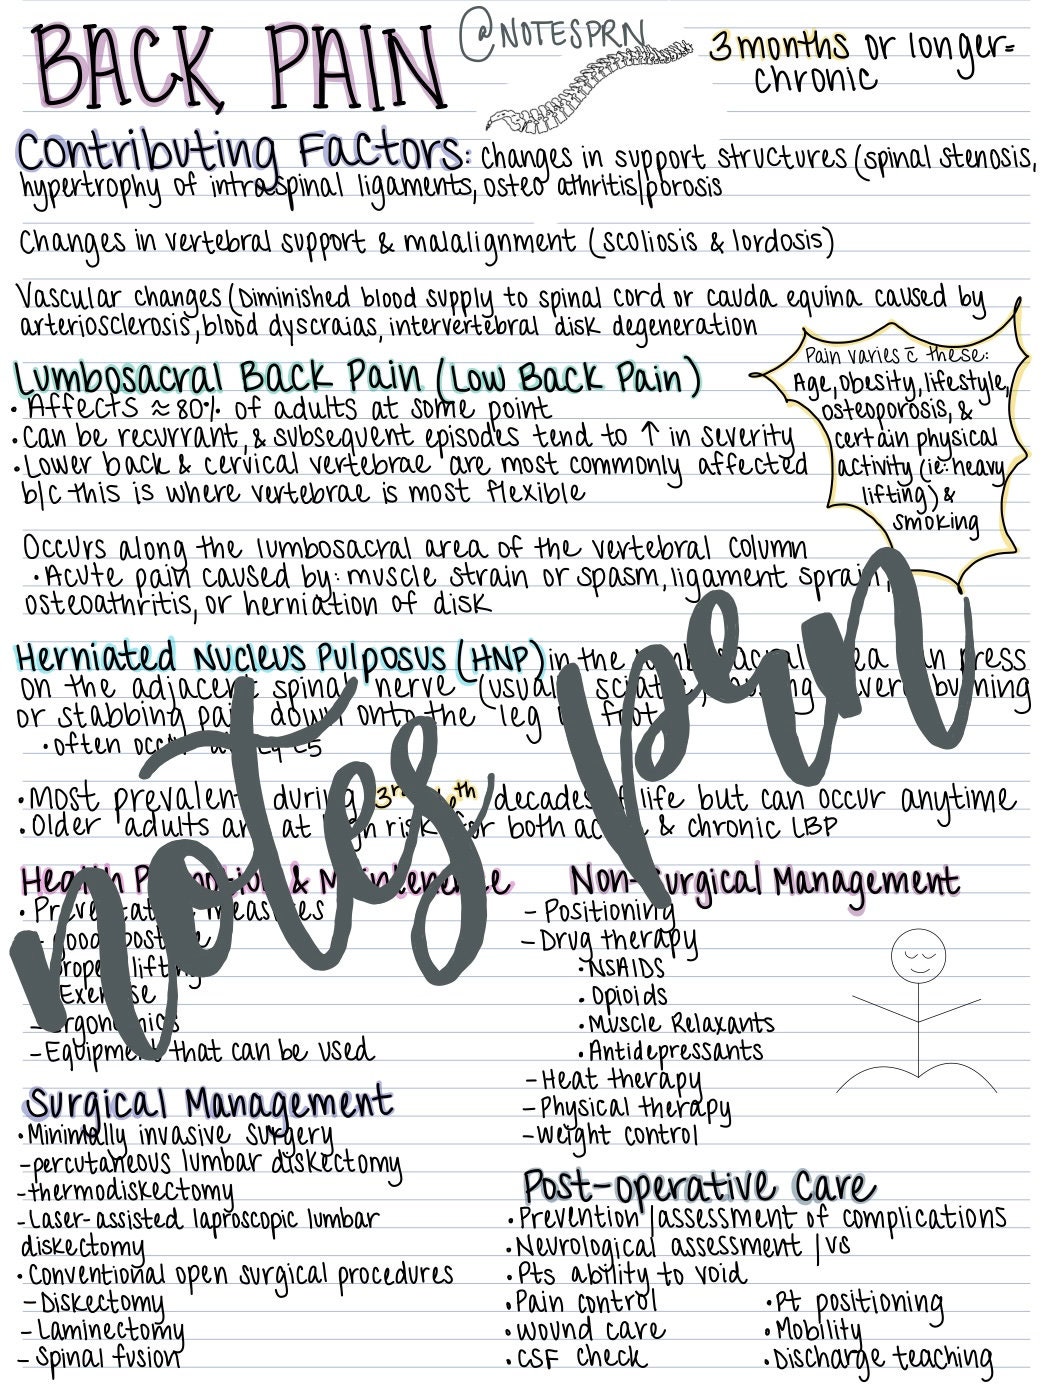 BACK PAIN
@NOTESPRN
3 months or longer=
chronic
Contributing Factors: Changes in support structures (spinal stenosis,
hypertrophy of intraspinal ligaments, osteo athritis/porosis
Changes in vertebral support & malalignment (scoliosis & lordosis)
Vascular changes (Diminished blood supply to spinal cord or cauda equina caused by
arteriosclerosis, blood dyscraias, intervertebral disk degeneration
Lumbosacral Back Pain (Low Back Pain)
• Affects ≈ 80% of adults at some point
• Can be recurrant, & subsequent episodes tend to ↑ in severity
• Lower back & cervical vertebrae are most commonly affected
b/c this is where vertebrae is most flexible
Pain varies c̄ these:
Age, obesity, lifestyle,
osteoporosis, &
certain physical
activity (ie: heavy
lifting) &
smoking
Occurs along the lumbosacral area of the vertebral column
• Acute pain caused by: muscle strain or spasm, ligament sprain,
osteoathritis, or herniation of disk
Herniated Nucleus Pulposus (HNP) in the lumbosacral area can press
on the adjacent spinal nerve (usually sciatic) causing severe burning
or stabbing pain down onto the leg or foot
• often occur L5
• Most prevalent during 3rd 6th decades of life but can occur anytime
• Older adults are at high risk for both acute & chronic LBP
Health Promotion & Maintenence
• Preventative measures
- good posture
- proper lifting
- Exercise
- Ergonomics
- Equipment that can be used
notes prn
Non-Surgical Management
- Positioning
- Drug therapy
• NSAIDS
• Opioids
• Muscle Relaxants
• Antidepressants
- Heat therapy
- Physical therapy
- Weight control
Surgical Management
• Minimally invasive surgery
- percutaneous lumbar diskectomy
- thermodiskectomy
- Laser-assisted laproscopic lumbar
diskectomy
• Conventional open surgical procedures
- Diskectomy
- Laminectomy
- Spinal fusion
Post-operative Care
• Prevention/assessment of complications
• Neurological assessment /vs
• Pts ability to void
• Pain control
• Wound care
• CSF check
• Pt positioning
• Mobility
• Discharge teaching